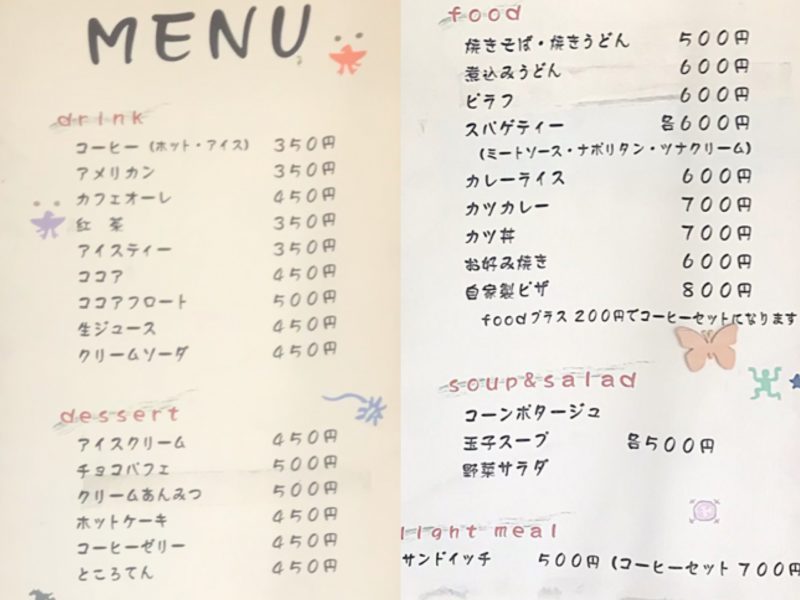 MENU
drink
コーヒー (ホット・アイス) 350円
アメリカン 350円
カフェオーレ 450円
紅 茶 350円
アイスティー 350円
ココア 450円
ココアフロート 500円
生ジュース 450円
クリームソーダ 450円
dessert
アイスクリーム 450円
チョコパフェ 500円
クリームあんみつ 500円
ホットケーキ 450円
コーヒーゼリー 450円
ところてん 450円
food
焼きそば・焼きうどん 500円
煮込みうどん 600円
ピラフ 600円
スパゲティー 各600円
(ミートソース・ナポリタン・ツナクリーム)
カレーライス 600円
カツカレー 700円
カツ丼 700円
お好み焼き 600円
自家製ピザ 800円
foodプラス200円でコーヒーセットになります
soup&salad
コーンポタージュ
玉子スープ 各500円
野菜サラダ
light meal
サンドイッチ 500円 (コーヒーセット 700円